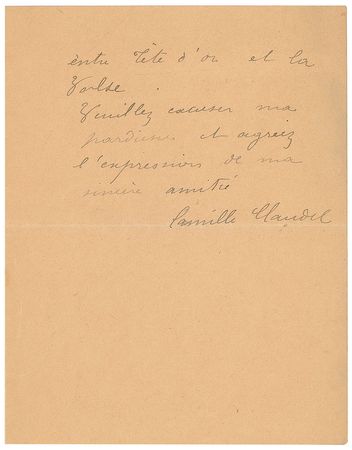 entre Tête d'or et la
Valse.
Veuillez excuser ma
hardiesse et agréez
l'expression de ma
sincère amitié
Camille Claudel